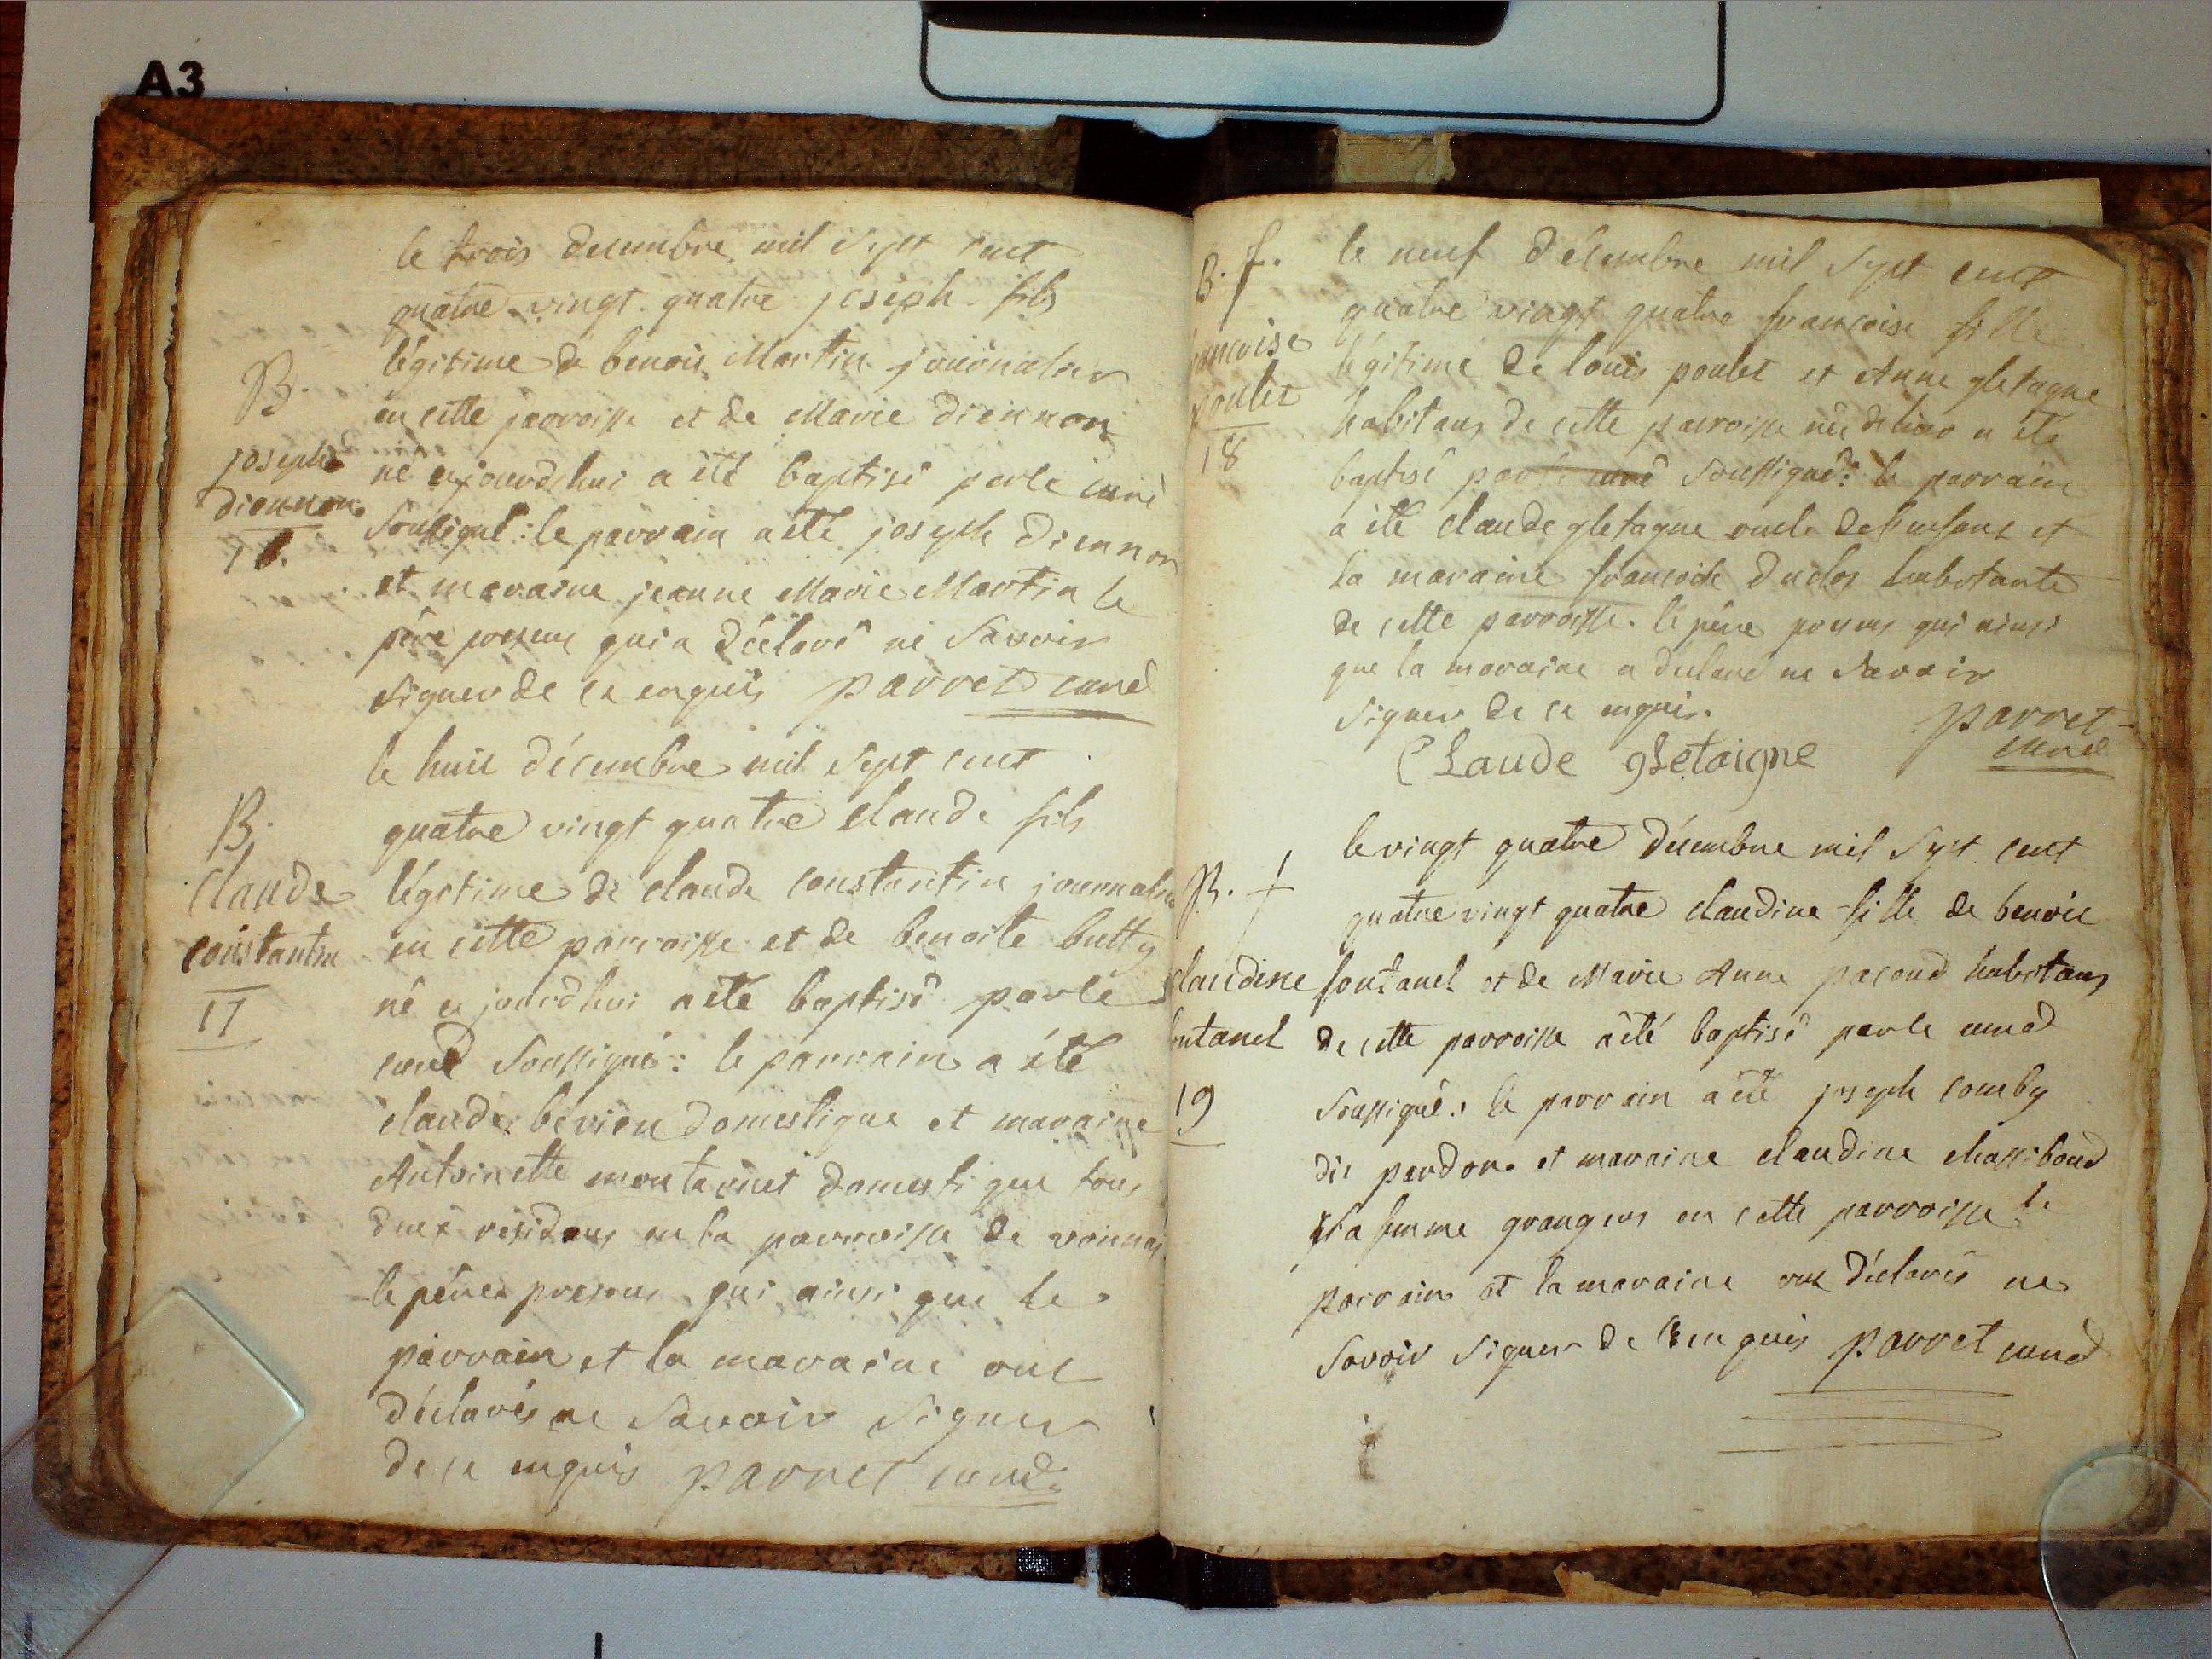 A3
le trois decembre mil sept cent
quatre vingt quatre joseph fils
légitime de benois Martin journalier
en cette parroisse et de Marie diennon
né aujourdhui a été baptisé par le curé
soussigné : le parrain a été joseph diennon
et maraine jeanne Marie Martin le
père present qui a déclaré ne savoir
signer de ce enquis parret curé
B.
joseph
diennon
16.
le huit décembre mil sept cent
quatre vingt quatre claude fils
légitime de claude constantin journalier
en cette parroisse et de benoite butty
né aujourdhui a été baptisé par le
curé soussigné : le parrain a été
claude bévieu domestique et maraine
Antoinette montarnet domestique tous
deux résidans en la parroisse de vonnas
le père present qui ainsi que le
parrain et la maraine ont
déclarés ne savoir signer
de ce enquis parret curé
B.
Claude
constantin
17
le neuf décembre mil sept cent
quatre vingt quatre francoise fille
légitime de louis poulet et Anne gletagne
habitans de cette parroisse née de hier a été
baptisé par le curé soussigné : le parrain
a été claude gletagne oncle de l'enfant et
la maraine francoise duclos habitante
de cette parroisse. le père present qui ainsi
que la maraine a déclaré ne savoir
signer de ce enquis.
parret
curé
Claude gletaigne
B. f.
francoise
poulet
18
le vingt quatre décembre mil sept cent
quatre vingt quatre claudine fille de benoit
fontanel et de Marie Anne pacoud habitans
de cette parroisse a été baptisé par le curé
soussigné : le parrain a été joseph comby
dit pardon et maraine claudine chassiboud
sa femme grangers en cette parroisse le
parrain et la maraine ont déclarés ne
savoir signer de ce enquis parret curé
B. f
claudine
fontanel
19